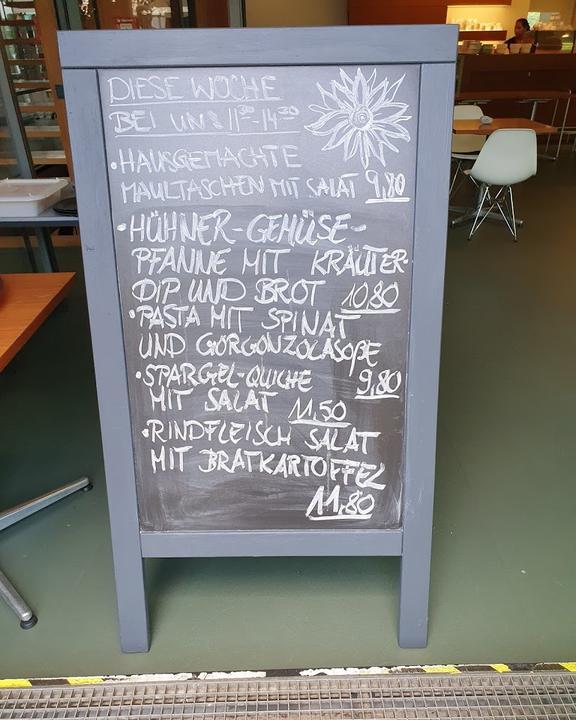 DIESE WOCHE
BEI UNS 11³⁰-14³⁰
•HAUSGEMACHTE
MAULTASCHEN MIT SALAT 9,80
•HÜHNER-GEMÜSE-
PFANNE MIT KRÄUTER-
DIP UND BROT 10,80
•PASTA MIT SPINAT
UND GORGONZOLASOßE
9,80
•SPARGEL-QUICHE
MIT SALAT 11,50
•RINDFLEISCH SALAT
MIT BRATKARTOFFEL
11,80